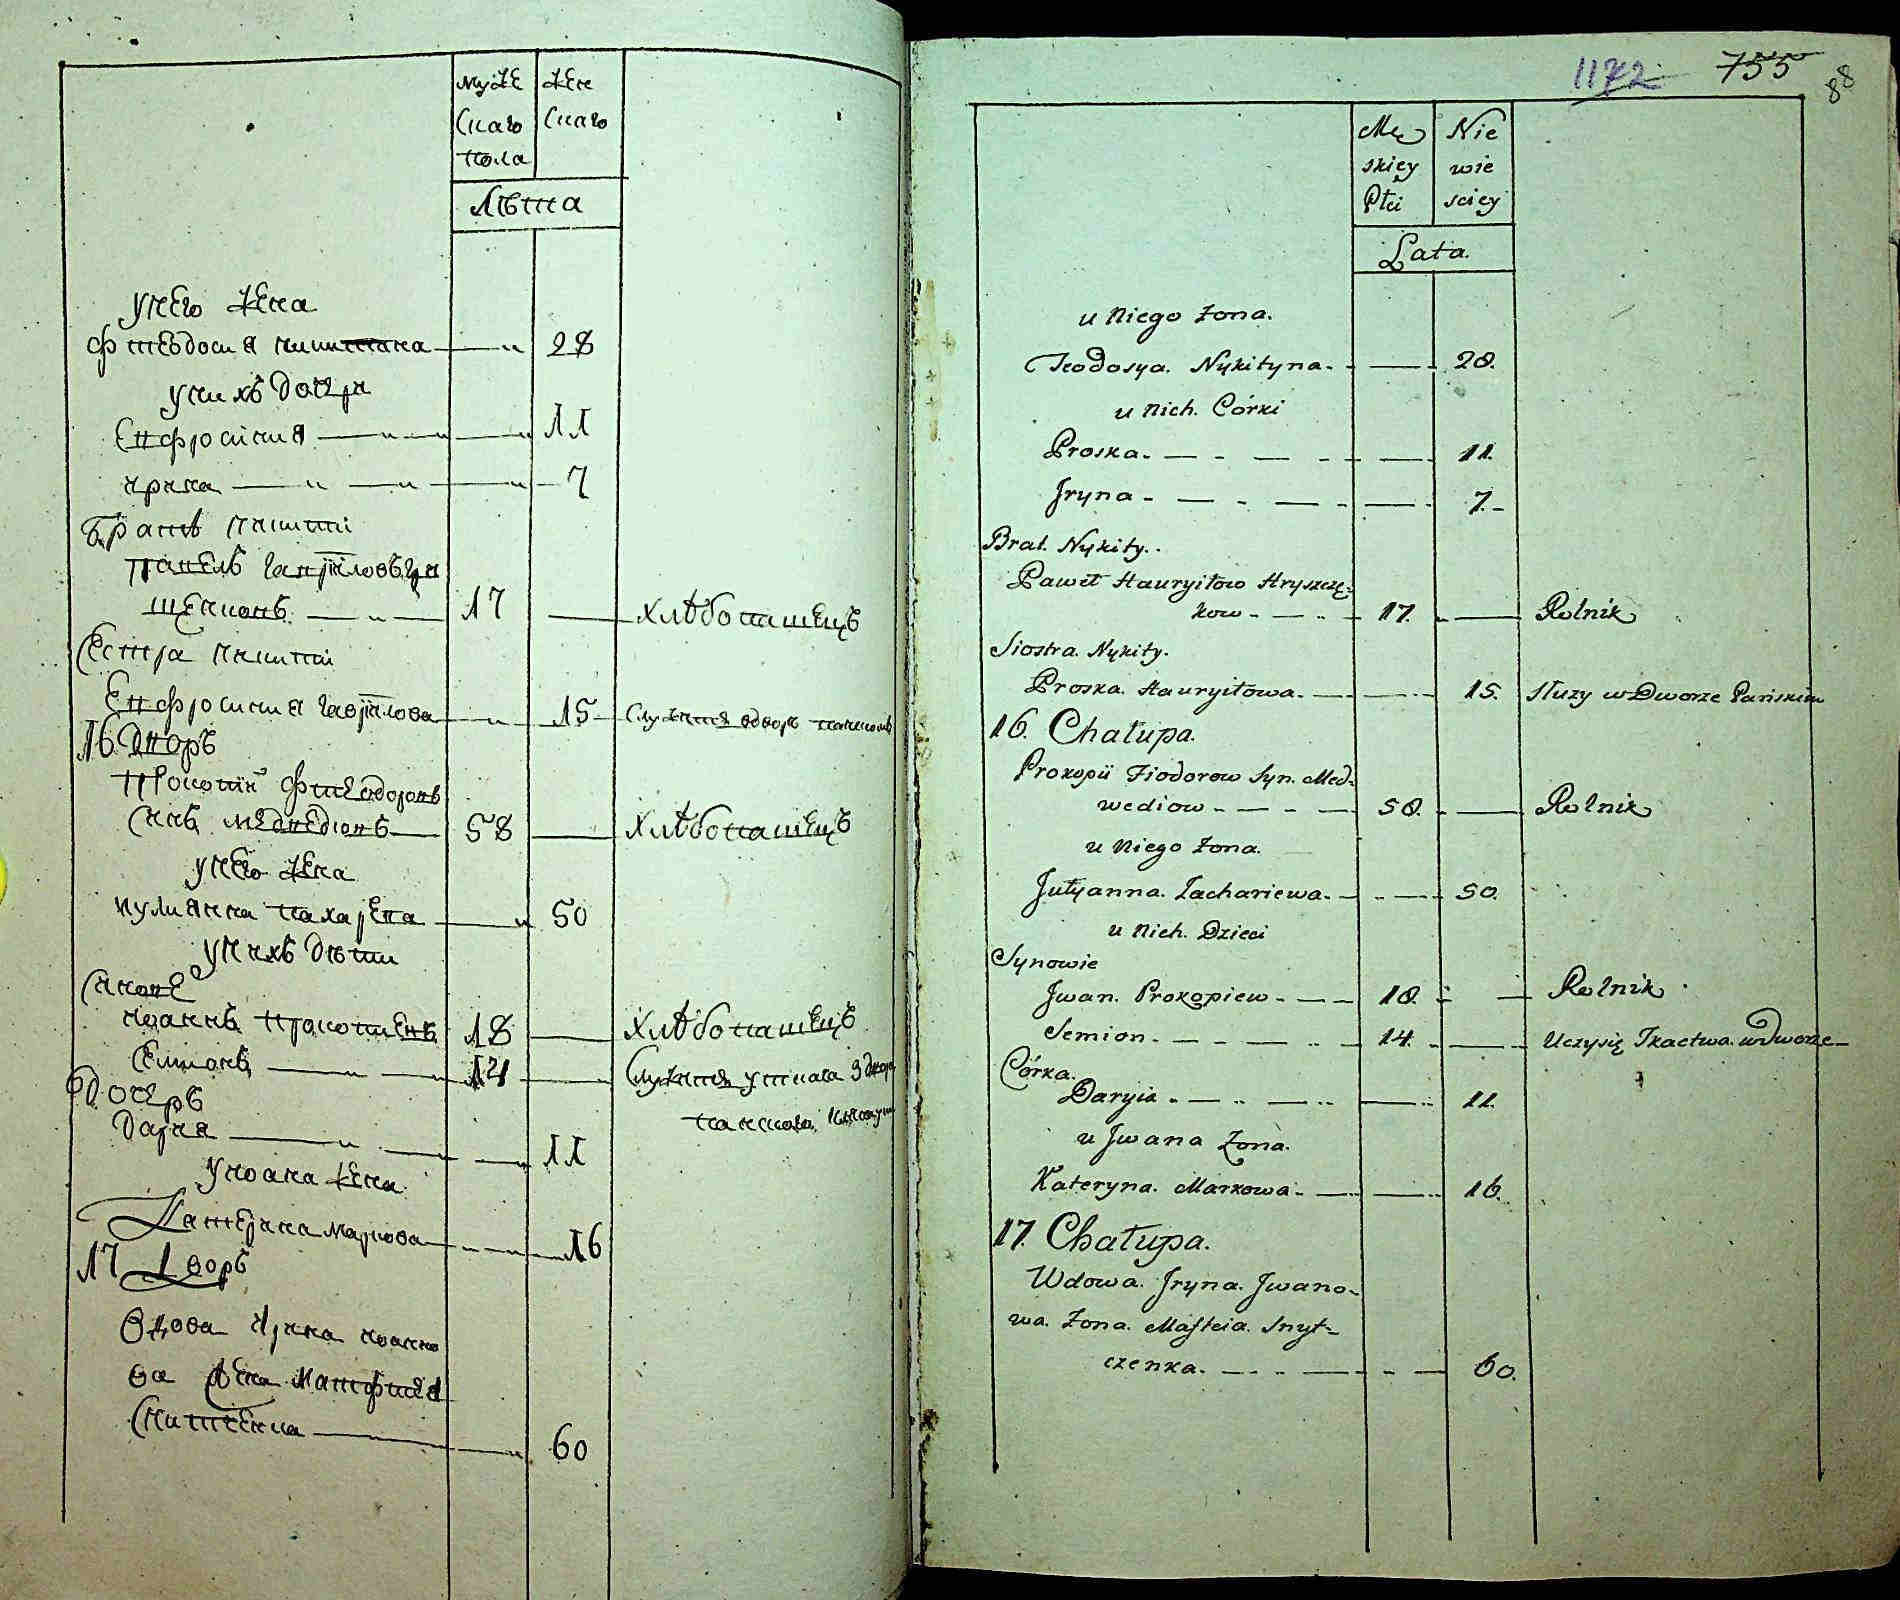 муже
скаго
пола
жен
скаго
Лѣта
у него жена
Фтеодосия никитина
28
у них дочери
Евфросиния
11
ирина
7
Братъ никити
павелъ гаврiиловъ гри
щенковъ
17
хлѣбопашецъ
Сестра никити
Евфросиния гаврiилова
15
16 Дворъ
прокопiй фтеодоровъ
снъ медведювъ
58
хлѣбопашецъ
у него жена
иулиянна захарева
50
у нихъ дѣти
Синове
иоаннъ прокопиевъ
18
хлѣбопашецъ
Семионъ
14
дочеръ
дария
11
у иоана жена
Катерина маркова
16
17 Дворъ
Вдова ирина иоанно
ва жена матфтея
Снитченка
60
1172 755
88
Mę
skiey
Płci
Nie
wie
sciey
Lata.
u Niego Żona.
Teodosya. Nykityna.
28.
u Nich. Córki
Proska.
11.
Jryna
7.
Brat. Nykity.
Paweł Hauryiłow Hryszczę-
kow
17.
Rolnik
Siostra. Nykity.
Proska. Hauryiłowa.
15.
Służy w Dworze Pańskim
16. Chałupa.
Prokopii Fiodorow Syn. Med-
wediow
58.
Rolnik
u Niego Żona.
Julyanna. Zachariewa.
50.
u Nich. Dzieci
Synowie
Jwan. Prokopiew
18.
Rolnik
Semion.
14.
Uczysię Tkactwa. w Dworze
Córka.
Daryia
11.
u Jwana Żona.
Kateryna. Markowa.
16.
17. Chałupa.
Wdowa. Jryna. Jwano-
wa. Żona. Matfeia. Snyt-
czenka.
60.